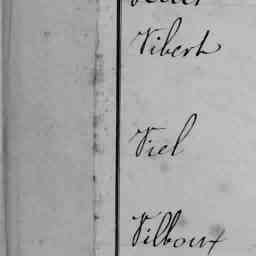 Vibert
Viel
Vilboux